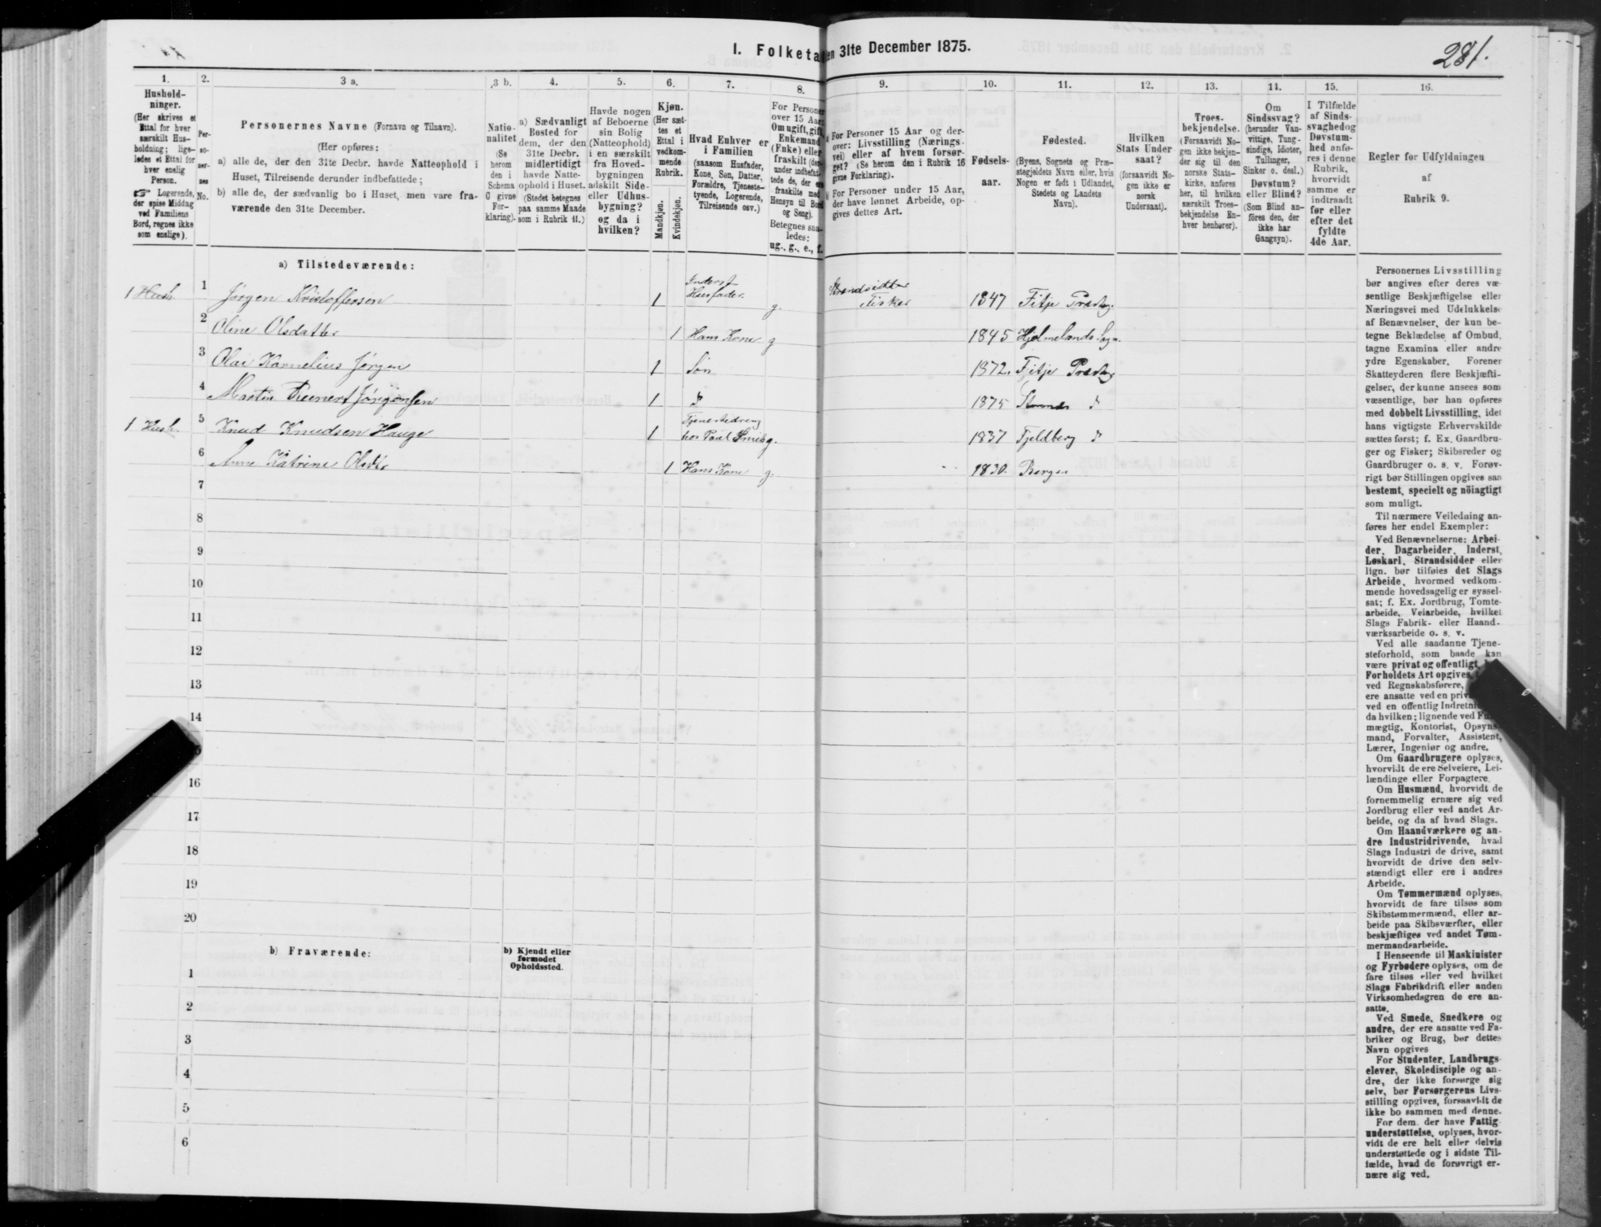 I. Folketa
en 31te December 1875.
281.
1.
2.
3 a.
3 b.
4.
5.
6.
7.
8.
9.
10.
11.
12.
13.
14.
15.
16.
Hushold-
ninger.
(Her skrives et
Ettal for hver
særskilt Hus-
holdning; lige-
ledes et Ettal for
hver enslig
Person.
☞ Logerende,
der spise Middag
ved Familiens
Bord, regnes ikke
som enslige).
Per-
so-
ner-
nes
No.
Personernes Navne (Fornavn og Tilnavn).
(Her opføres:
a) alle de, der den 31te Decbr. havde Natteophold i
Huset, Tilreisende derunder indbefattede;
b) alle de, der sædvanlig bo i Huset, men vare fra-
værende den 31te December.
Natio-
nalitet
(Se
herom
den i
Schema
C givne
For-
klaring).
a) Sædvanligt
Bosted for
dem, der den
31te Decbr.
midlertidigt
havde Natte-
ophold i Huset.
(Stedet betegnes
paa samme Maade
som i Rubrik 11.)
Havde nogen
af Beboerne
sin Bolig
(Natteophold)
i en særskilt
fra Hoved-
bygningen
adskilt Side-
eller Udhus-
bygning?
og da i
hvilken?
Kjøn.
(Her sæt-
tes et
Ettal i
vedkom-
mende
Rubrik.
Mandkjøn.
Kvindekjøn.
Hvad Enhver er
i Familien
(saasom Husfader,
Kone, Søn, Datter,
Forældre, Tjeneste-
tyende, Logerende,
Tilreisende osv.)
For Persone
over 15 Aar
Om ugift, gift,
Enkemand
(Enke) eller
fraskilt (der-
under indbefat-
tede de, der er
fraskilte med
Hensyn til Bord
og Seng).
Betegnes saa-
ledes:
ug., g., e., f.
For Personer 15 Aar og der-
over: Livsstilling (Nærings-
vei) eller af hvem forsør-
get? (Se herom den i Rubrik 16
givne Forklaring).
For Personer under 15 Aar,
der have lønnet Arbeide, op-
gives dettes Art.
Fødsels-
aar.
Fødested.
(Byens, Sognets og Præ-
stegjeldets Navn eller, hvis
Nogen er født i Udlandet,
Stedets og Landets
Navn).
Hvilken
Stats Under-
saat?
(forsaavidt No-
gen ikke er
norsk
Undersaat).
Troes-
bekjendelse.
(Forsaavidt No-
gen ikke bekjen-
der sig til den
norske Stats-
kirke, anføres
her, til hvilken
særskilt Troes-
bekjendelse En-
hver henhører).
Om
Sindssvag?
(herunder Van-
vittige, Tung-
sindige, Idioter,
Tullinger,
Sinker o. desl.)
Døvstum?
eller Blind?
(Som Blind an-
føres den, der
ikke har
Gangsyn).
I Tilfælde
af Sinds-
svaghed og
Døvstum-
hed anfø-
res i denne
Rubrik,
hvorvidt
samme er
indtraadt
før eller
efter det
fyldte
4de Aar.
Regler for Udfyldningen
af
Rubrik 9.
a) Tilstedeværende:
1 Hush. 1 Jørgen Kristoffersen 1 Inderst Husfader g. Strandsidder Fisker 1847 Fitje Præstg.
2 Oline Olsdatter 1 Hans Kone g 1845 Hjelmelands Sogn
3 Olai Kornelius Jørgen 1 Søn 1872 Fitje Præstg
4 Martin Reenert Jørgensen 1 1875
1 Hush. 5 Knud Knudsen Hauge 1 Tjenestedreng hos Paul g. 1837 Fjeldberg
6 Anne Katrine Olsdtr 1 Hans Kone g. 1830 Bergen
7
8
9
10
11
12
13
14
16
17
18
19
20
b) Fraværende:
b) Kjendt eller
formodet
Opholdssted.
1
2
3
4
5
6
Personernes Livsstilling
bør angives efter deres væ-
sentlige Beskjæftigelse eller
Næringsvei med Udelukkelse
af Benævnelser, der kun be-
tegne Beklædelse af Ombud,
tagne Examina eller andre
ydre Egenskaber. Forener
Skatteyderen flere Beskjæfti-
gelser, der kunne ansees som
væsentlige, bør han opføres
med dobbelt Livsstilling, idet
hans vigtigste Erhvervskilde
sættes først; f. Ex. Gaardbru-
ger og Fisker; Skibsreder og
Gaardbruger o. s. v. Forøv-
rigt bør Stillingen opgives saa
bestemt, specielt og nöiagtigt
som muligt.
Til nærmere Veiledning an-
føres her endel Exempler:
Ved Benævnelserne: Arbei-
der, Dagarbeider, Inderst,
Løskarl, Strandsidder eller
lign. bør tilføies det Slags
Arbeide, hvormed vedkom-
mende hovedsagelig er syssel-
sat; f. Ex. Jordbrug, Tomte-
arbeide, Veiarbeide, hvilket
Slags Fabrik- eller Haand-
værksarbeide o. s. v.
Ved alle saadanne Tjene-
steforhold, som baade kan
være privat og offentligt,
Forholdets Art opgives,
ved Regnskabsførere,
ere ansatte ved en
ved en offentlig
da hvilken; lignende ved
mægtig, Kontorist, Opsyns-
mand, Forvalter, Assistent,
Lærer, Ingeniør og andre.
Om Gaardbrugere oplyses,
hvorvidt de ere Selveiere, Lei-
lændinge eller Forpagtere.
Om Husmænd, hvorvidt de
fornemmelig ernære sig ved
Jordbrug eller ved andet Ar-
beide, og da af hvad Slags.
Om Haandværkere og an-
dre Industridrivende, hvad
Slags Industri de drive, samt
hvorvidt de drive den selv-
stændigt eller ere i andres
Arbeide.
Om Tømmermænd oplyses,
hvorvidt de fare tilsøs som
Skibstømmermænd, eller ar-
beide paa Skibsværfter, eller
beskjæftiges ved andet Tøm-
mermandsarbeide.
I Henseende til Maskinister
og Fyrbødere oplyses, om de
fare tilsøs eller ved hvilket
Slags Fabrikdrift eller anden
Virksomhedsgren de ere an-
satte.
Ved Smede, Snedkere og
andre, der ere ansatte ved Fa-
briker og Brug, bør dettes
Navn opgives
For Studenter, Landbrugs-
elever, Skoledisciple og an-
dre, der ikke forsørge sig
selv, bør Forsørgerens Livs-
stilling opgives, forsaavidt de
ikke bo sammen med denne.
For dem, der have Fattig-
understøttelse, oplyses, hvor-
vidt de ere helt eller delvis
understøttede og i sidste Til-
fælde, hvad de forøvrigt er-
nære sig ved.